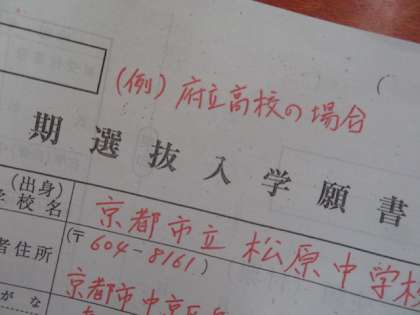 (例) 府立高校の場合
期選抜入学願書
(出身)
学校名
京都市立 松原中学校
者住所
(〒604-8161)
がな
京都市中京区